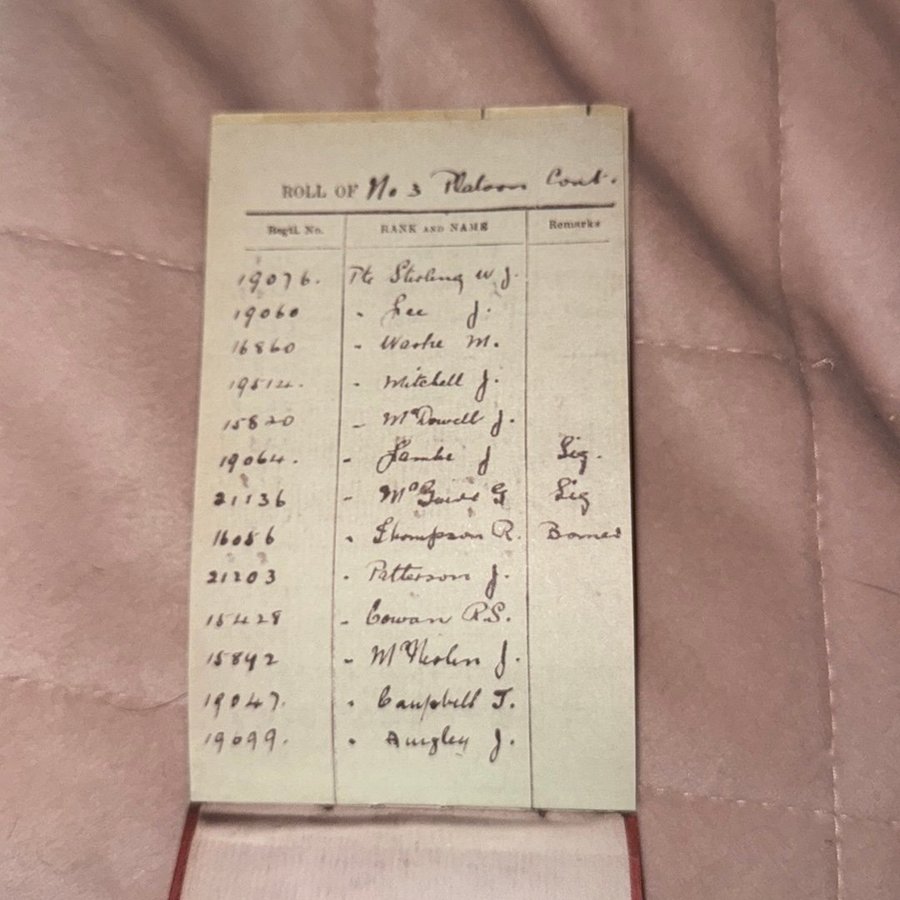 ROLL OF No 3 Platoon Cont.
Regtl. No. RANK AND NAME Remarks
19076. Pte Stirling W. J.
19060 " Lee J.
16860 " M.
19514. " Mitchell J.
15820 " McDowell J.
19064. " Lambe J Sig.
21136 " G Sig
16056 " Thompson R.
21203 " Patterson J.
15428 " Cowan R.S.
15892 " J.
19047. " Campbell T.
19099. " Quigley J.